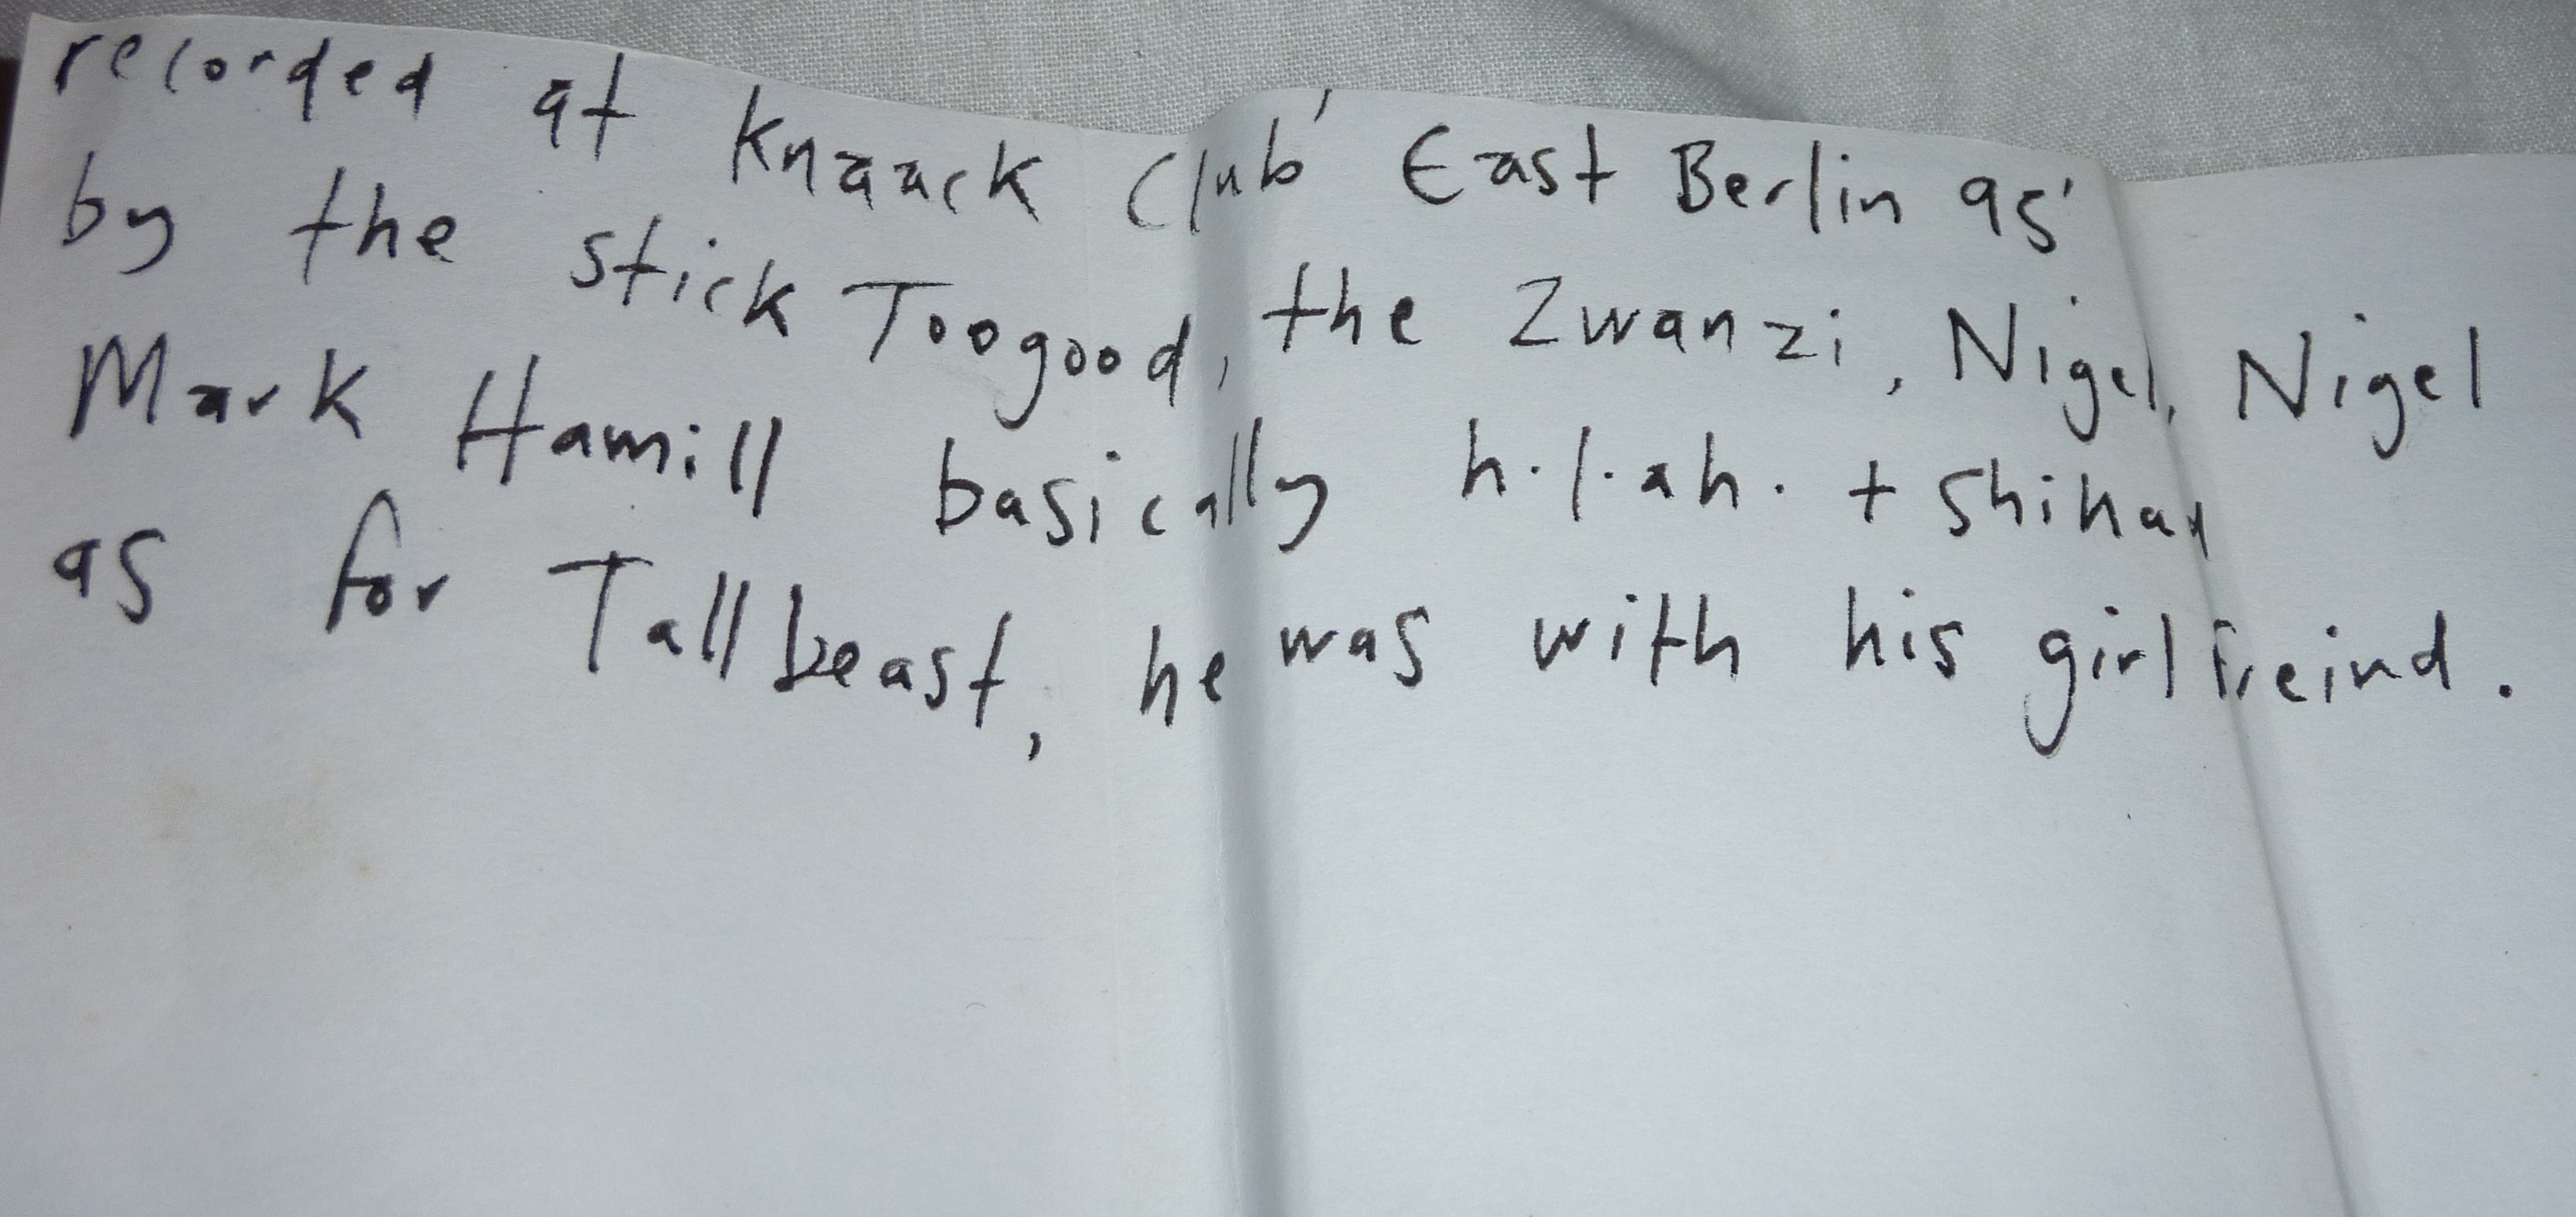 recorded at Knaack Club' East Berlin 95'
by the stick Toogood, the Zwanzi, Nigel, Nigel
Mark Hamill basically h.l.ah. + Shihad
as for Tallbeast, he was with his girlfreind.